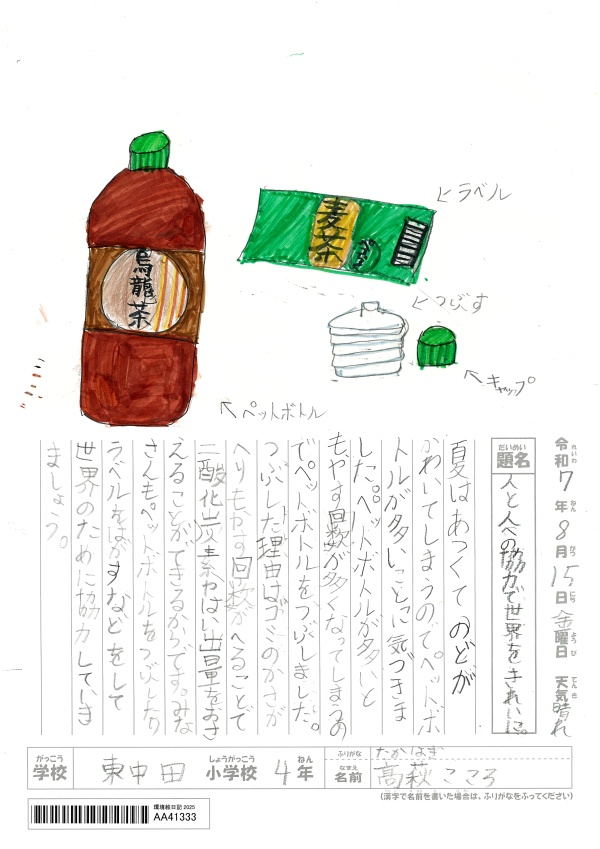 烏龍茶
麦茶
←ラベル
←つぶす
←キャップ
←ペットボトル
令和7年8月15日金曜日 天気晴れ
れいわ ねん がつ にち ようび てんき
だいめい
題名
人と人への協力で世界をきれいに。
夏はあつくてのどが
かわいてしまうのでペットボ
トルが多いことに気づきま
した。ペットボトルが多いと
もやす回数が多くなってしまうの
でペットボトルをつぶしました。
つぶした理由はゴミのかさが
へりもやす回数がへることで
二酸化炭素やはい出量をおさ
えることができるからです。みな
さんもペットボトルをつぶしたり
ラベルをはがすなどをして
世界のために協力していき
ましょう。
がっこう
学校
東中田
しょうがっこう
小学校
4
ねん
年
ふりがな
たかはぎ
なまえ
名前
髙萩こころ
(漢字で名前を書いた場合は、ふりがなをふってください)
環境絵日記 2025
AA41333